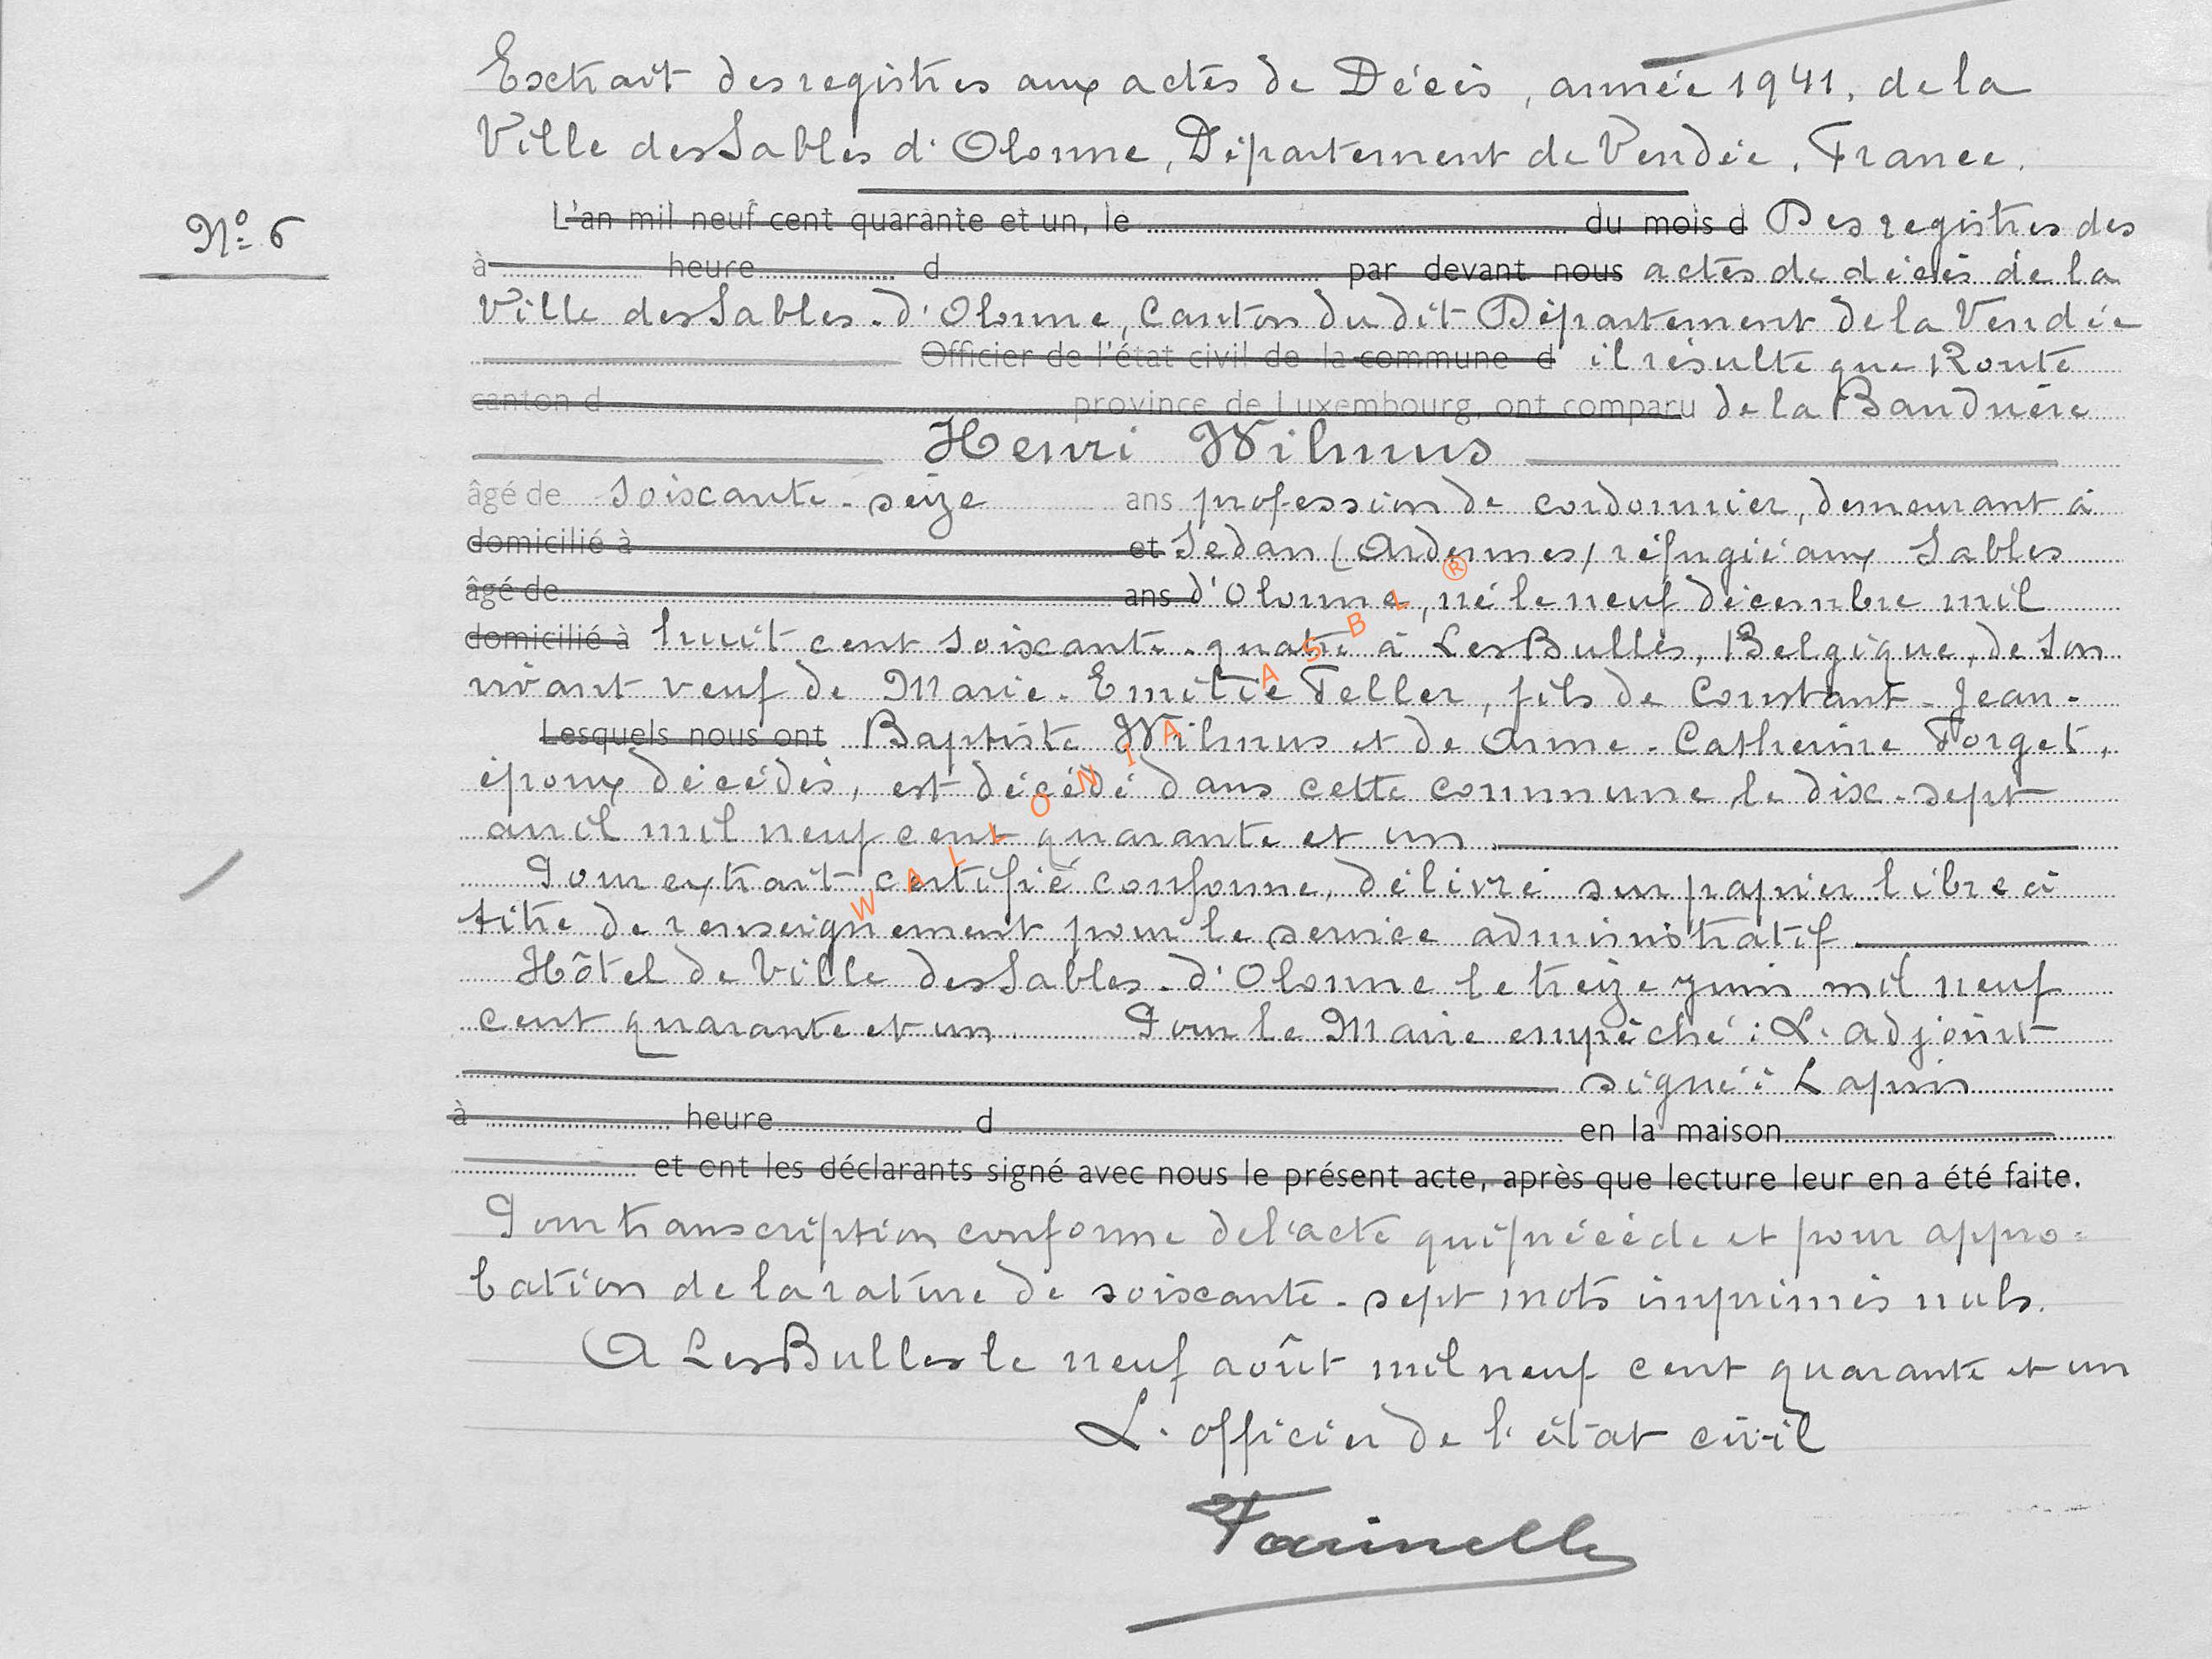 Extrait des registres aux actes de Décès, année 1941, de la
Ville des Sables d'Olonne, Département de Vendée. France.
N° 6
L'an mil neuf cent quarante et un, le du mois d Des registres des
à heure d par devant nous actes de décès de la
Ville des Sables-d'Olonne, Canton du dit Département de la Vendée
Officier de l'état civil de la commune d il résulte que Route
canton d province de Luxembourg, ont comparu de la Bauduère
Henri Wilmus
âgé de soixante-seize ans profession de cordonnier, demeurant à
domicilié à et Sedan (Ardennes) réfugié aux Sables
âgé de ans d'Olonne, né le neuf décembre mil
domicilié à huit cent soixante-quatre à Les Bulles, Belgique, de son
vivant veuf de Marie-Emilie Feller, fils de Constant-Jean-
Lesquels nous ont Baptiste Wilmus et de Anne-Catherine Forget,
époux décédés, est décédé dans cette commune le dix-sept
avril mil neuf cent quarante et un.
Pour extrait certifié conforme, délivré sur papier libre à
titre de renseignement pour le service administratif
Hôtel de Ville des Sables-d'Olonne le treize juin mil neuf
cent quarante et un. Pour le Maire empêché: L'adjoint
signé: Lapuis
à heure d en la maison
et ont les déclarants signé avec nous le présent acte, après que lecture leur en a été faite.
Pour transcription conforme de l'acte qui précède et pour appro=
bation de la rature de soixante-sept mots imprimés nuls.
A Les Bulles le neuf août mil neuf cent quarante et un
L'officier de l'état civil
Farinelle
WALLONIA ASBL ®